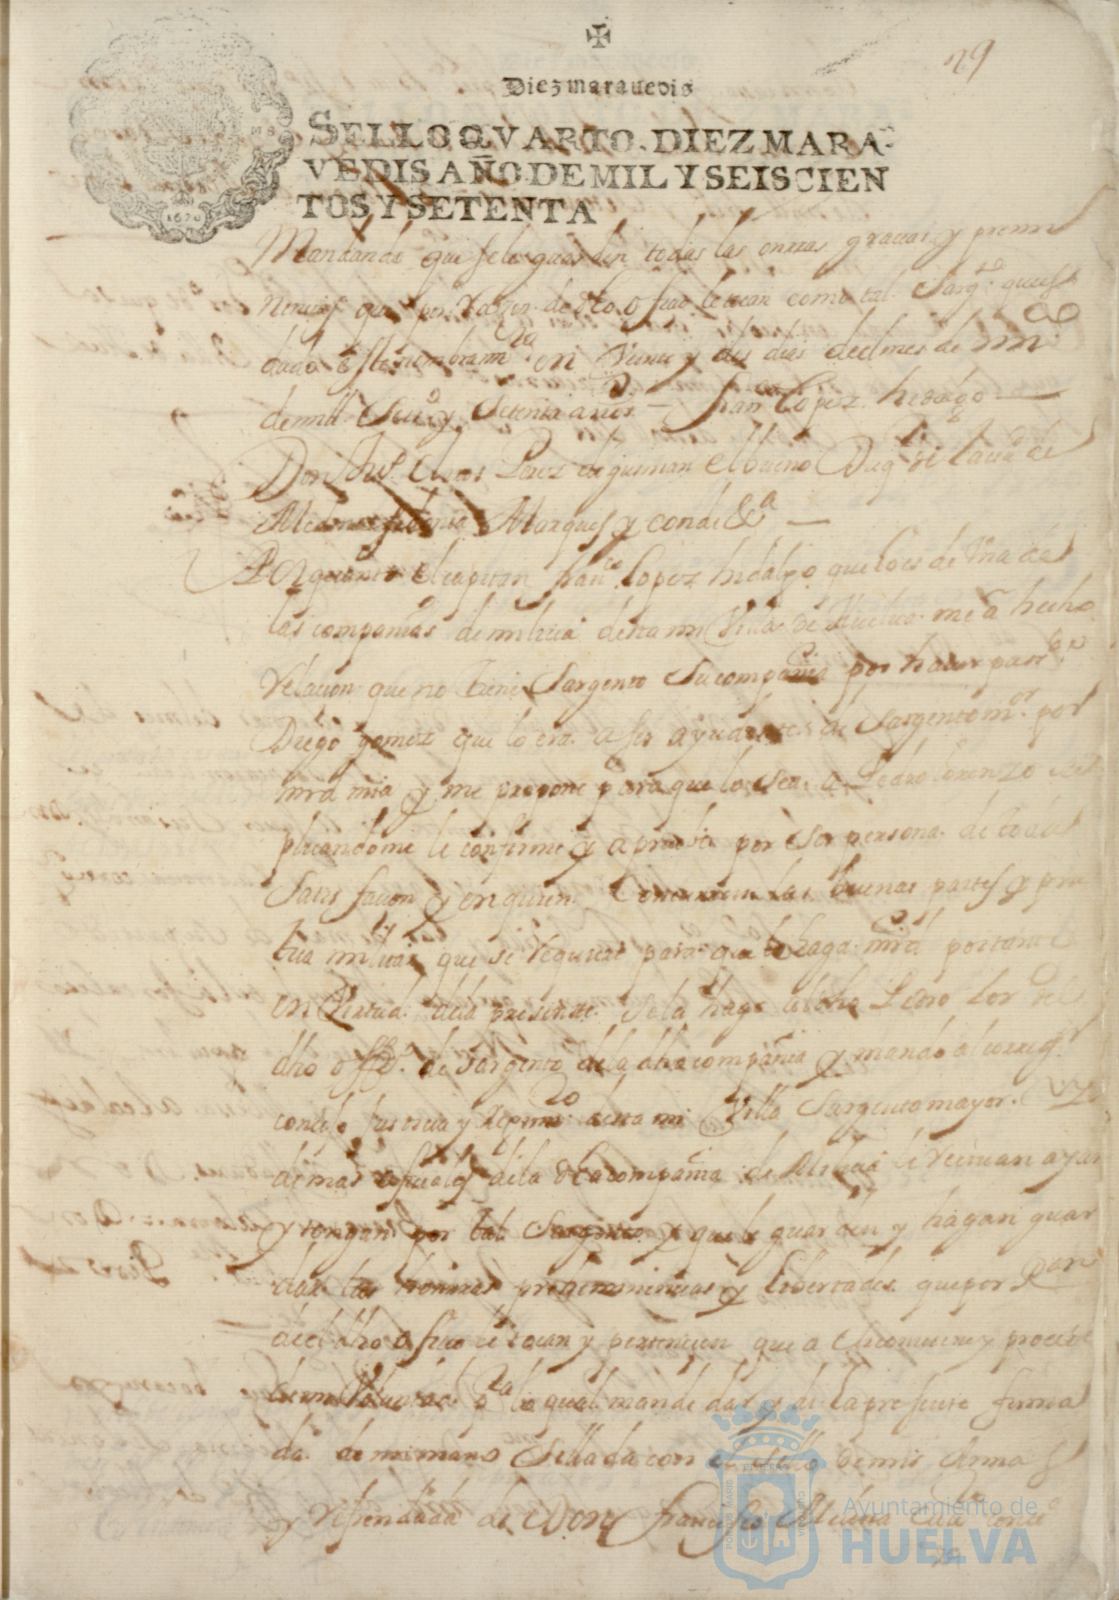 29
Diez maravedis
SELLO QVARTO, DIEZ MARA-
VEDIS AÑO DE MIL Y SEISCIEN
TOS Y SETENTA
1670
Mandando que se le guarden todas las onrras gracias y preemi
nencias que por raçon de dho ofiçio le tocan como tal Sargto
dado este nombramto en Veinte y dos dias del mes de
de mill Seisos y Setenta años — Franco Lopez hidalgo
Don Juo Claros Perez de guzman el bueno Duq de la ciud de
Medina sidonia Marques y conde &a —
Por quanto el capitan franco Lopez hidalgo que lo es de Vna de
las companias de miliçia desta mi Villa de Huelua me a hecho
relacion que no tiene Sargento Su compañia por hauer pasado
Diego gomez que lo era a ser ayudante de Sargento mor por
mrd mia y me propone para que lo sea a Pedro lorenzo su
plicandome le confirme y aprueue por ser persona de toda
Satisfacion y en quien Concurren las buenas partes y pra
tica militar que se requiere para que le haga mrd por tanto
en Virtud dela presente se la hago al dho Pedro Lor del
dho offo de Sargento de la dha compañia y mando al corregr
concejo Justicia y Regimto desta mi Villa Sargento mayor y
demas ofiçiales dela dha compañia de Miliçia le reciuan ayan
y tengan por tal Sargento y que le guarden y hagan guar
dar las honrras preheminencias y libertades que por raçon
del dho ofiçio le tocan y pertenecen que a Si conuiene y procede
de mi Voluntad pa lo qual mande dar y di la presente firma
da de mi mano Sellada con el Sello de mis Armas
y refrendada de Don francisco
Ayuntamiento de
HUELVA